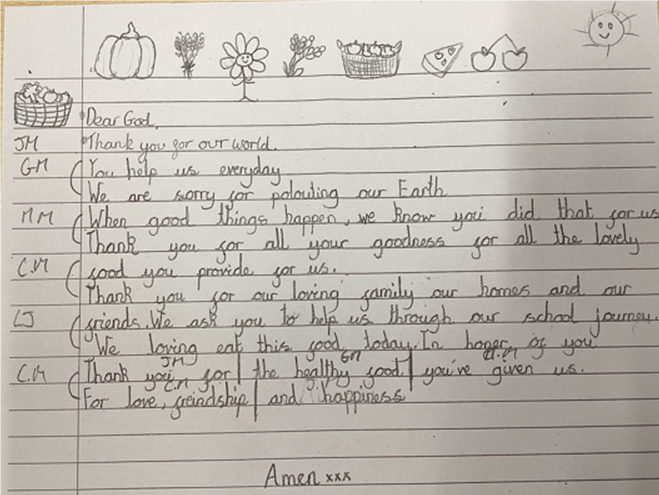 Dear God,
JM Thank you for our world.
GM You help us everyday
We are sorry for polouting our Earth
MM When good things happen, we know you did that for us
Thank you for all your goodness for all the lovely
C.M food you provide for us.
Thank you for our loving family our homes and our
LJ friends. We ask you to help us through our school journey.
We loving eat this food today. In honer of you
JM GM M.M
C.M Thank you for | the healthy food | you've given us.
C.M
For love, freindship | and happiness
Amen xxx